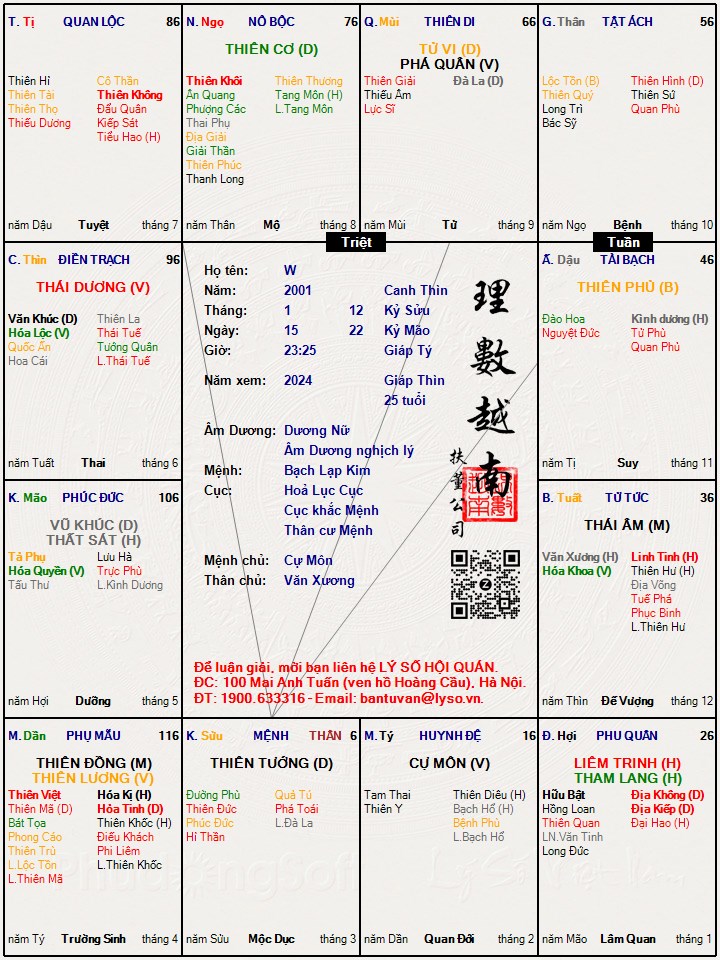 T. Tị QUAN LỘC 86
Thiên Hỉ Cô Thần
Thiên Tài Thiên Không
Thiên Thọ Đẩu Quân
Thiếu Dương Kiếp Sát
Tiểu Hao (H)
năm Dậu Tuyệt tháng 7
N. Ngọ NÔ BỘC 76
THIÊN CƠ (D)
Thiên Khôi Thiên Thương
Ân Quang Tang Môn (H)
Phượng Các L.Tang Môn
Thai Phụ
Địa Giải
Giải Thần
Thiên Phúc
Thanh Long
năm Thân Mộ tháng 8
Q. Mùi THIÊN DI 66
TỬ VI (D)
PHÁ QUÂN (V)
Thiên Giải Đà La (D)
Thiếu Âm
Lực Sĩ
năm Mùi Tử tháng 9
G. Thân TẬT ÁCH 56
Lộc Tồn (B) Thiên Hình (D)
Thiên Quý Thiên Sứ
Long Trì Quan Phù
Bác Sỹ
năm Ngọ Bệnh tháng 10
Triệt
Tuần
C. Thìn ĐIỀN TRẠCH 96
THÁI DƯƠNG (V)
Văn Khúc (D) Thiên La
Hóa Lộc (V) Thái Tuế
Quốc Ấn Tướng Quân
Hoa Cái L.Thái Tuế
năm Tuất Thai tháng 6
Họ tên: W
Năm: 2001 Canh Thìn
Tháng: 1 12 Kỷ Sửu
Ngày: 15 22 Kỷ Mão
Giờ: 23:25 Giáp Tý
Năm xem: 2024 Giáp Thìn
25 tuổi
Âm Dương: Dương Nữ
Âm Dương nghịch lý
Mệnh: Bạch Lạp Kim
Cục: Hoả Lục Cục
Cục khắc Mệnh
Thân cư Mệnh
Mệnh chủ: Cự Môn
Thân chủ: Văn Xương
理數越南
扶董公司
Z
Để luận giải, mời bạn liên hệ LÝ SỐ HỘI QUÁN.
ĐC: 100 Mai Anh Tuấn (ven hồ Hoàng Cầu), Hà Nội.
ĐT: 1900.633316 - Email: bantuvan@lyso.vn.
Ấ. Dậu TÀI BẠCH 46
THIÊN PHỦ (B)
Đào Hoa Kình dương (H)
Nguyệt Đức Tử Phù
Quan Phủ
năm Tị Suy tháng 11
K. Mão PHÚC ĐỨC 106
VŨ KHÚC (D)
THẤT SÁT (H)
Tả Phụ Lưu Hà
Hóa Quyền (V) Trực Phù
Tấu Thư L.Kình Dương
năm Hợi Dưỡng tháng 5
B. Tuất TỬ TỨC 36
THÁI ÂM (M)
Văn Xương (H) Linh Tinh (H)
Hóa Khoa (V) Thiên Hư (H)
Địa Võng
Tuế Phá
Phục Binh
L.Thiên Hư
năm Thìn Đế Vượng tháng 12
M. Dần PHỤ MẪU 116
THIÊN ĐỒNG (M)
THIÊN LƯƠNG (V)
Thiên Việt Hóa Kị (H)
Thiên Mã (D) Hỏa Tinh (D)
Bát Tọa Thiên Khốc (H)
Phong Cáo Điếu Khách
Thiên Trù Phi Liêm
L.Lộc Tồn L.Thiên Khốc
L.Thiên Mã
năm Tý Trường Sinh tháng 4
K. Sửu MỆNH THÂN 6
THIÊN TƯỚNG (D)
Đường Phù Quả Tú
Thiên Đức Phá Toái
Phúc Đức L.Đà La
Hỉ Thần
năm Sửu Mộc Dục tháng 3
M. Tý HUYNH ĐỆ 16
CỰ MÔN (V)
Tam Thai Thiên Diêu (H)
Thiên Y Bạch Hổ (H)
Bệnh Phù
L.Bạch Hổ
năm Dần Quan Đới tháng 2
Đ. Hợi PHU QUÂN 26
LIÊM TRINH (H)
THAM LANG (H)
Hữu Bật Địa Không (D)
Hồng Loan Địa Kiếp (D)
Thiên Quan Đại Hao (H)
LN.Văn Tinh
Long Đức
năm Mão Lâm Quan tháng 1